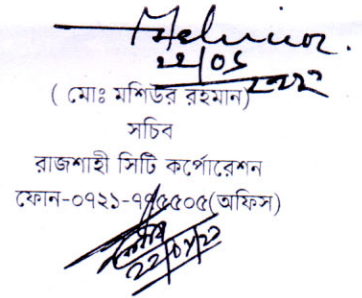 ২২/০৫
২০২২
( মোঃ মশিউর রহমান)
সচিব
রাজশাহী সিটি কর্পোরেশন
ফোন-০৭২১-৭৭৫৫০৫(অফিস)